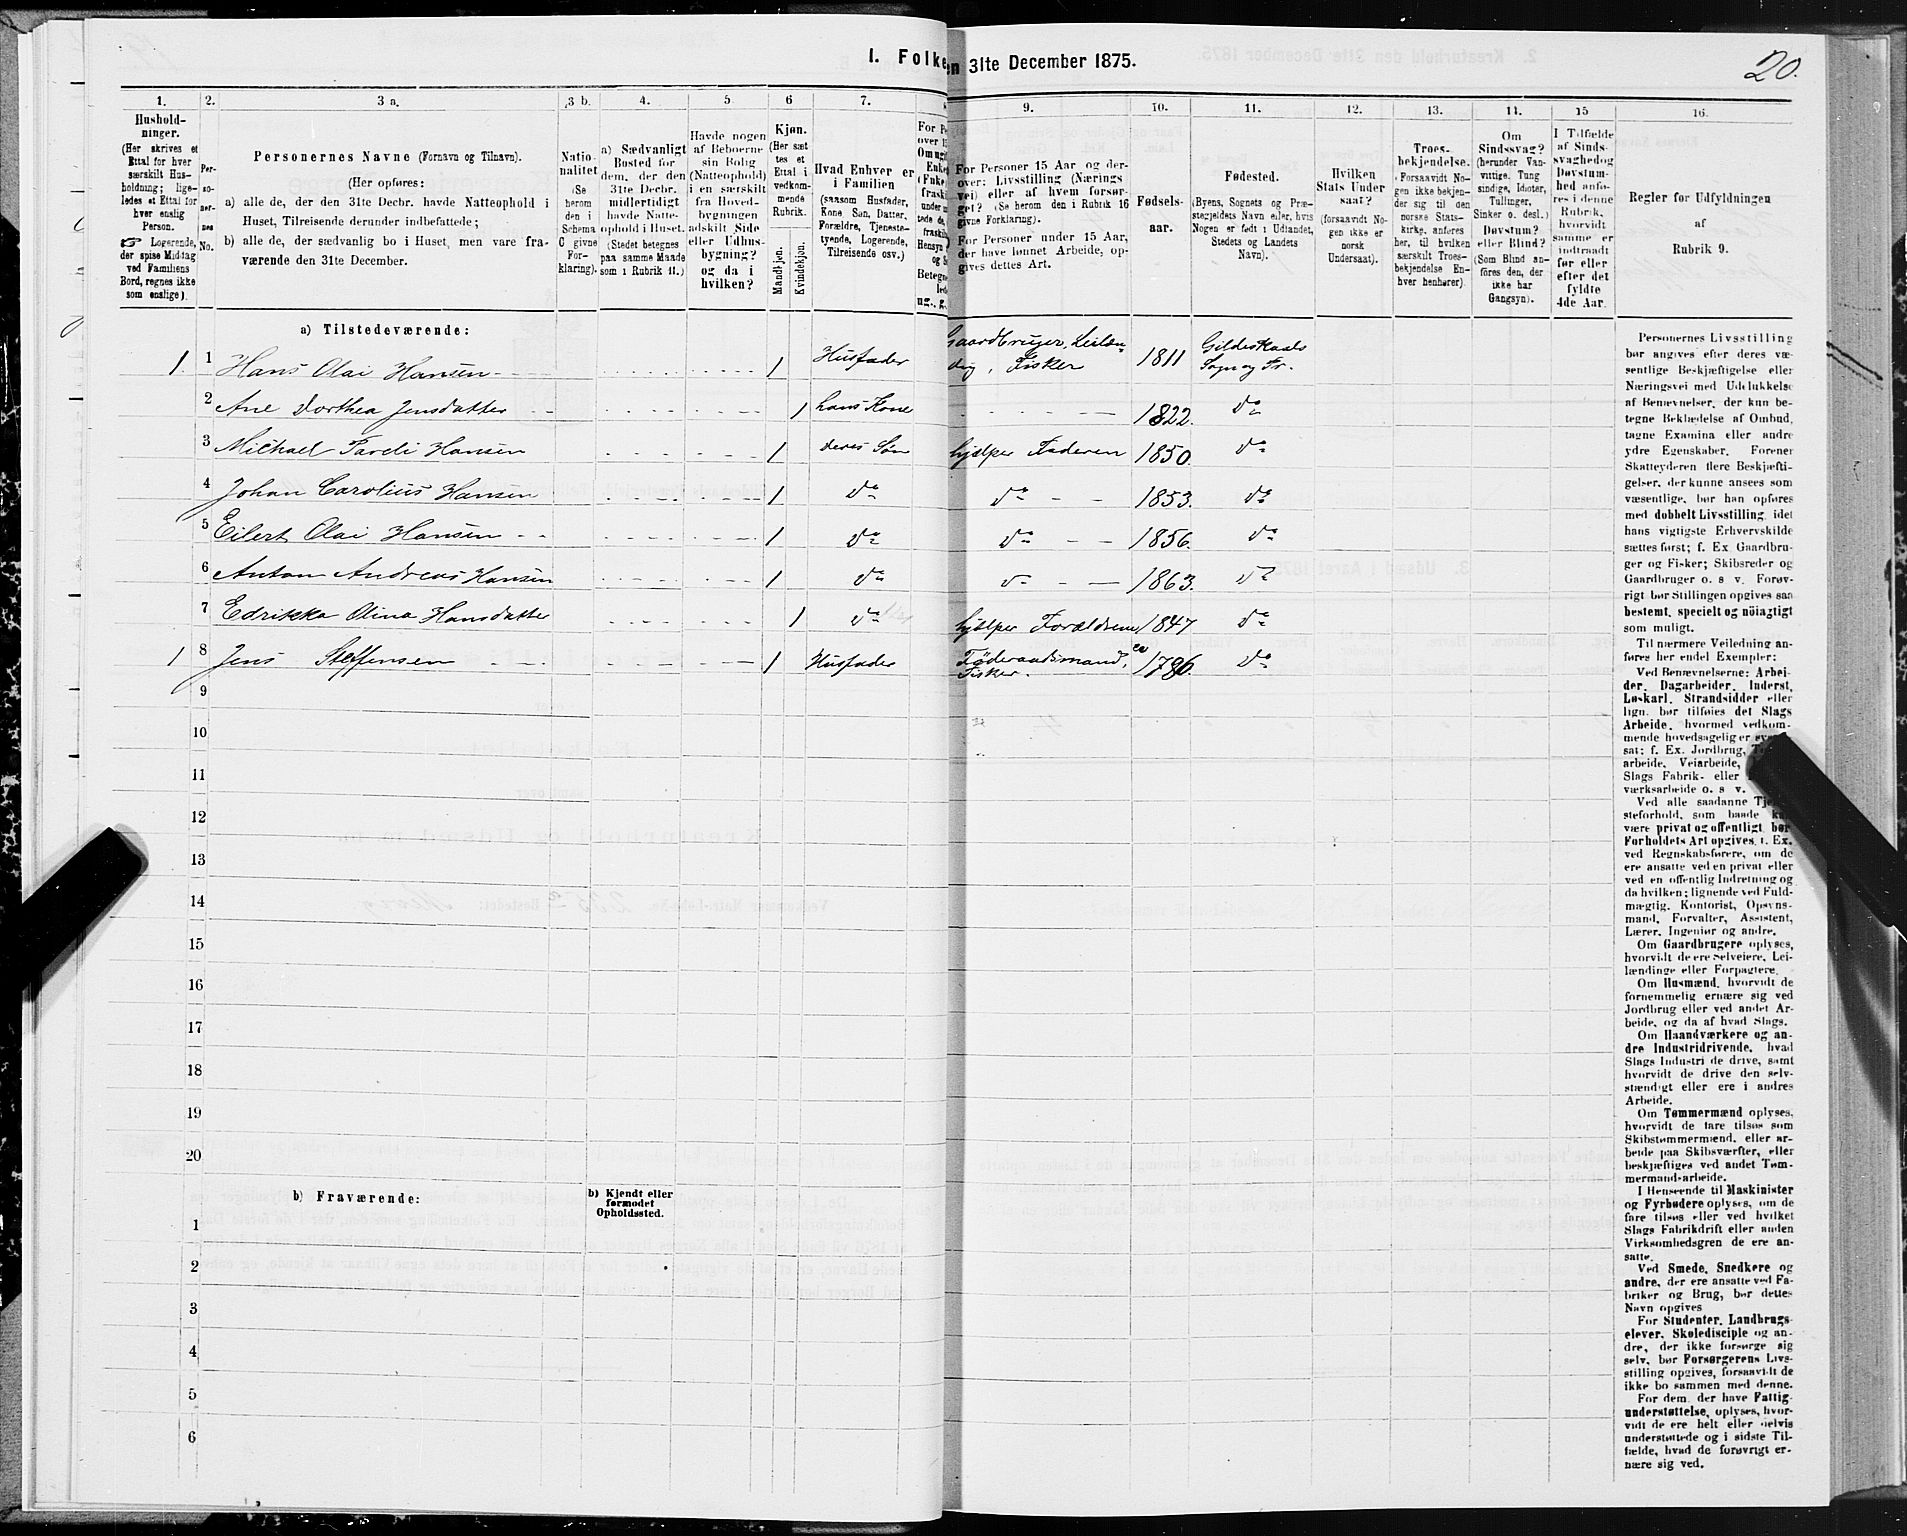 1. Folke
en 31te December 1875.
20.
1.
2.
3 a.
3 b.
4.
5
6
7.
8
9.
10.
11.
12.
13.
14.
15
16.
Hushold-
ninger.
(Her skrives et
Ettal for hver
særskilt Hus-
holdning; lige-
ledes et Ettal for
hver enslig
Person.
☞ Logerende,
der spise Middag
ved Familiens
Bord, regnes ikke
som enslige).
Per-
so-
ner-
nes
No.
Personernes Navne (Fornavn og Tilnavn).
(Her opføres:
a) alle de, der den 31te Decbr. havde Natteophold i
Huset, Tilreisende derunder indbefattede;
b) alle de, der sædvanlig bo i Huset, men vare fra-
værende den 31te December.
Natio-
nalitet
(Se
herom
den i
Schema
C givne
For-
klaring).
a) Sædvanligt
Bosted for
dem, der den
31te Decbr.
midlertidigt
havde Natte-
ophold i Huset.
(Stedet betegnes
paa samme Maade
som i Rubrik 11.)
Havde nogen
af Beboerne
sin Bolig
(Natteophold)
i en særskilt
fra Hoved-
bygningen
adskilt Side
eller Udhus-
bygning?
og da i
hvilken?
Kjøn.
(Her sæt
tes et
Ettal i
vedkom-
mende
Rubrik.
Mandkjøn.
Kvindekjøn.
Hvad Enhver er
i Familien
(saasom Husfader,
Kone Søn, Datter,
Forældre, Tjeneste-
tyende, Logerende,
Tilreisende osv.)
For Personer 15 Aar og der-
over: Livsstilling (Nærings
vei) eller af hvem forsør-
get? (Se herom den i Rubrik 16
givne Forklaring).
For Personer under 15 Aar,
der have lønnet Arbeide, op-
gives dettes Art.
Fødsels-
aar.
Fødested.
(Byens, Sognets og Præ-
stegjeldets Navn eller, hvis
Nogen er født i Udlandet,
Stedets og Landets
Navn).
Hvilken
Stats Under
saat?
(forsaavidt No-
gen ikke er
norsk
Undersaat).
Troes-
bekjendelse.
(Forsaavidt No-
gen ikke bekjen-
der sig til den
norske Stats-
kirke, anføres
her, til hvilken
særskilt Troes-
bekjendelse En-
hver henhører).
Om
Sindssvag?
(herunder Van-
vittige, Tung
sindige, Idioter,
Tullinger,
Sinker o. desl.)
Døvstum?
eller Blind?
(Som Blind an-
føres den, der
ikke har
Gangsyn).
I Tilfælde
af Sinds-
svaghed og
Døvstum-
hed anfø-
res i denne
Rubrik,
hvorvidt
samme er
indtraadt
før eller
efter det
fyldte
4de Aar.
Regler for Udfyldningen
af
Rubrik 9.
a) Tilstedeværende:
1. 1 Hans Olai Hansen 1 Husfader Gaardbruger, Leilæn-
dig, Fisker 1811 Gildeskaals
Sogn og Pr.
2 Ane Dorthea Jensdatter 1 hans Kone 1822. do
3 Michael Hansen 1 deres Søn hjælper Faderen 1850. do
4 Johan Carolius Hansen 1 do do 1853. do
5 Eilert Olai Hansen 1 do do 1856. do
6 Anton Andreas Hansen 1 do do 1863. do
7 Edrikka Olina Hansdatter 1 do hjælper Forældrene 1847 do
1 8 Jens Steffensen 1 Husfader Føderaadsmand,
Fisker. 1786. do
9
10
11
12
13
14
15
16
17
18
19
20
b) Fraværende:
b) Kjendt eller
formodet
Opholdssted.
1
2
3
4
5
6
Personernes Livsstilling
bør angives efter deres væ-
sentlige Beskjæftigelse eller
Næringsvei med Udelukkelse
af Benævnelser, der kun be-
tegne Beklædelse af Ombud,
tagne Examina eller andre
ydre Egenskaber. Forener
Skatteyderen flere Beskjæfti-
gelser, der kunne ansees som
væsentlige, bør han opføres
med dobbelt Livsstilling, idet
hans vigtigste Erhvervskilde
sættes først; f. Ex. Gaardbru-
ger og Fisker; Skibsreder og
Gaardbruger o. s v. Forøv-
rigt bør Stillingen opgives saa
bestemt, specielt og nöiagtigt
som muligt.
Til nærmere Veiledning an-
føres her endel Exempler:
Ved Benævnelserne: Arbei-
der, Dagarbeider, Inderst,
Løskarl, Strandsidder eller
lign. bør tilføies det Slags
Arbeide, hvormed vedkom-
mende hovedsagelig er
sat; f. Ex. Jordbrug,
arbeide, Veiarbeide,
Slags Fabrik- eller
værksarbeide o. s v.
Ved alle saadanne
steforhold, som baade
være privat og offentligt, bør
Forholdets Art opgives, f. Ex.
ved Regnskabsførere, om de
ere ansatte ved en privat eller
ved en offentlig Indretning og
da hvilken; lignende ved Fuld-
mægtig, Kontorist, Opsyns-
mand, Forvalter, Assistent,
Lærer, Ingeniør og andre.
Om Gaardbrugere oplyses,
hvorvidt de ere Selveiere, Lei-
lændinge eller Forpagtere.
Om Husmænd, hvorvidt de
fornemmelig ernære sig ved
Jordbrug eller ved andet Ar-
beide, og da af hvad Slags.
Om Haandværkere og an-
dre Industridrivende, hvad
Slags Industri de drive, samt
hvorvidt de drive den selv-
stændigt eller ere i andres
Arbeide.
Om Tømmermænd oplyses,
hvorvidt de fare tilsøs som
Skibstømmermænd, eller ar-
beide paa Skibsværfter, eller
beskjæftiges ved andet Tøm-
mermand-arbeide.
I Henseende til Maskinister
og Fyrbødere oplyses, om de
fare tilsøs eller ved hvilket
Slags Fabrikdrift eller anden
Virksomhedsgren de ere an-
satte.
Ved Smede, Snedkere og
andre, der ere ansatte ved Fa-
briker og Brug, bør dettes
Navn opgives
For Studenter, Landbrugs-
elever, Skoledisciple og an-
dre, der ikke forsørge sig
selv, bør Forsørgerens Livs-
stilling opgives, forsaavidt de
ikke bo sammen med denne.
For dem, der have Fattig-
understøttelse, oplyses, hvor-
vidt de ere helt eller delvis
understøttede og i sidste Til-
fælde, hvad de forøvrigt er-
nære sig ved.